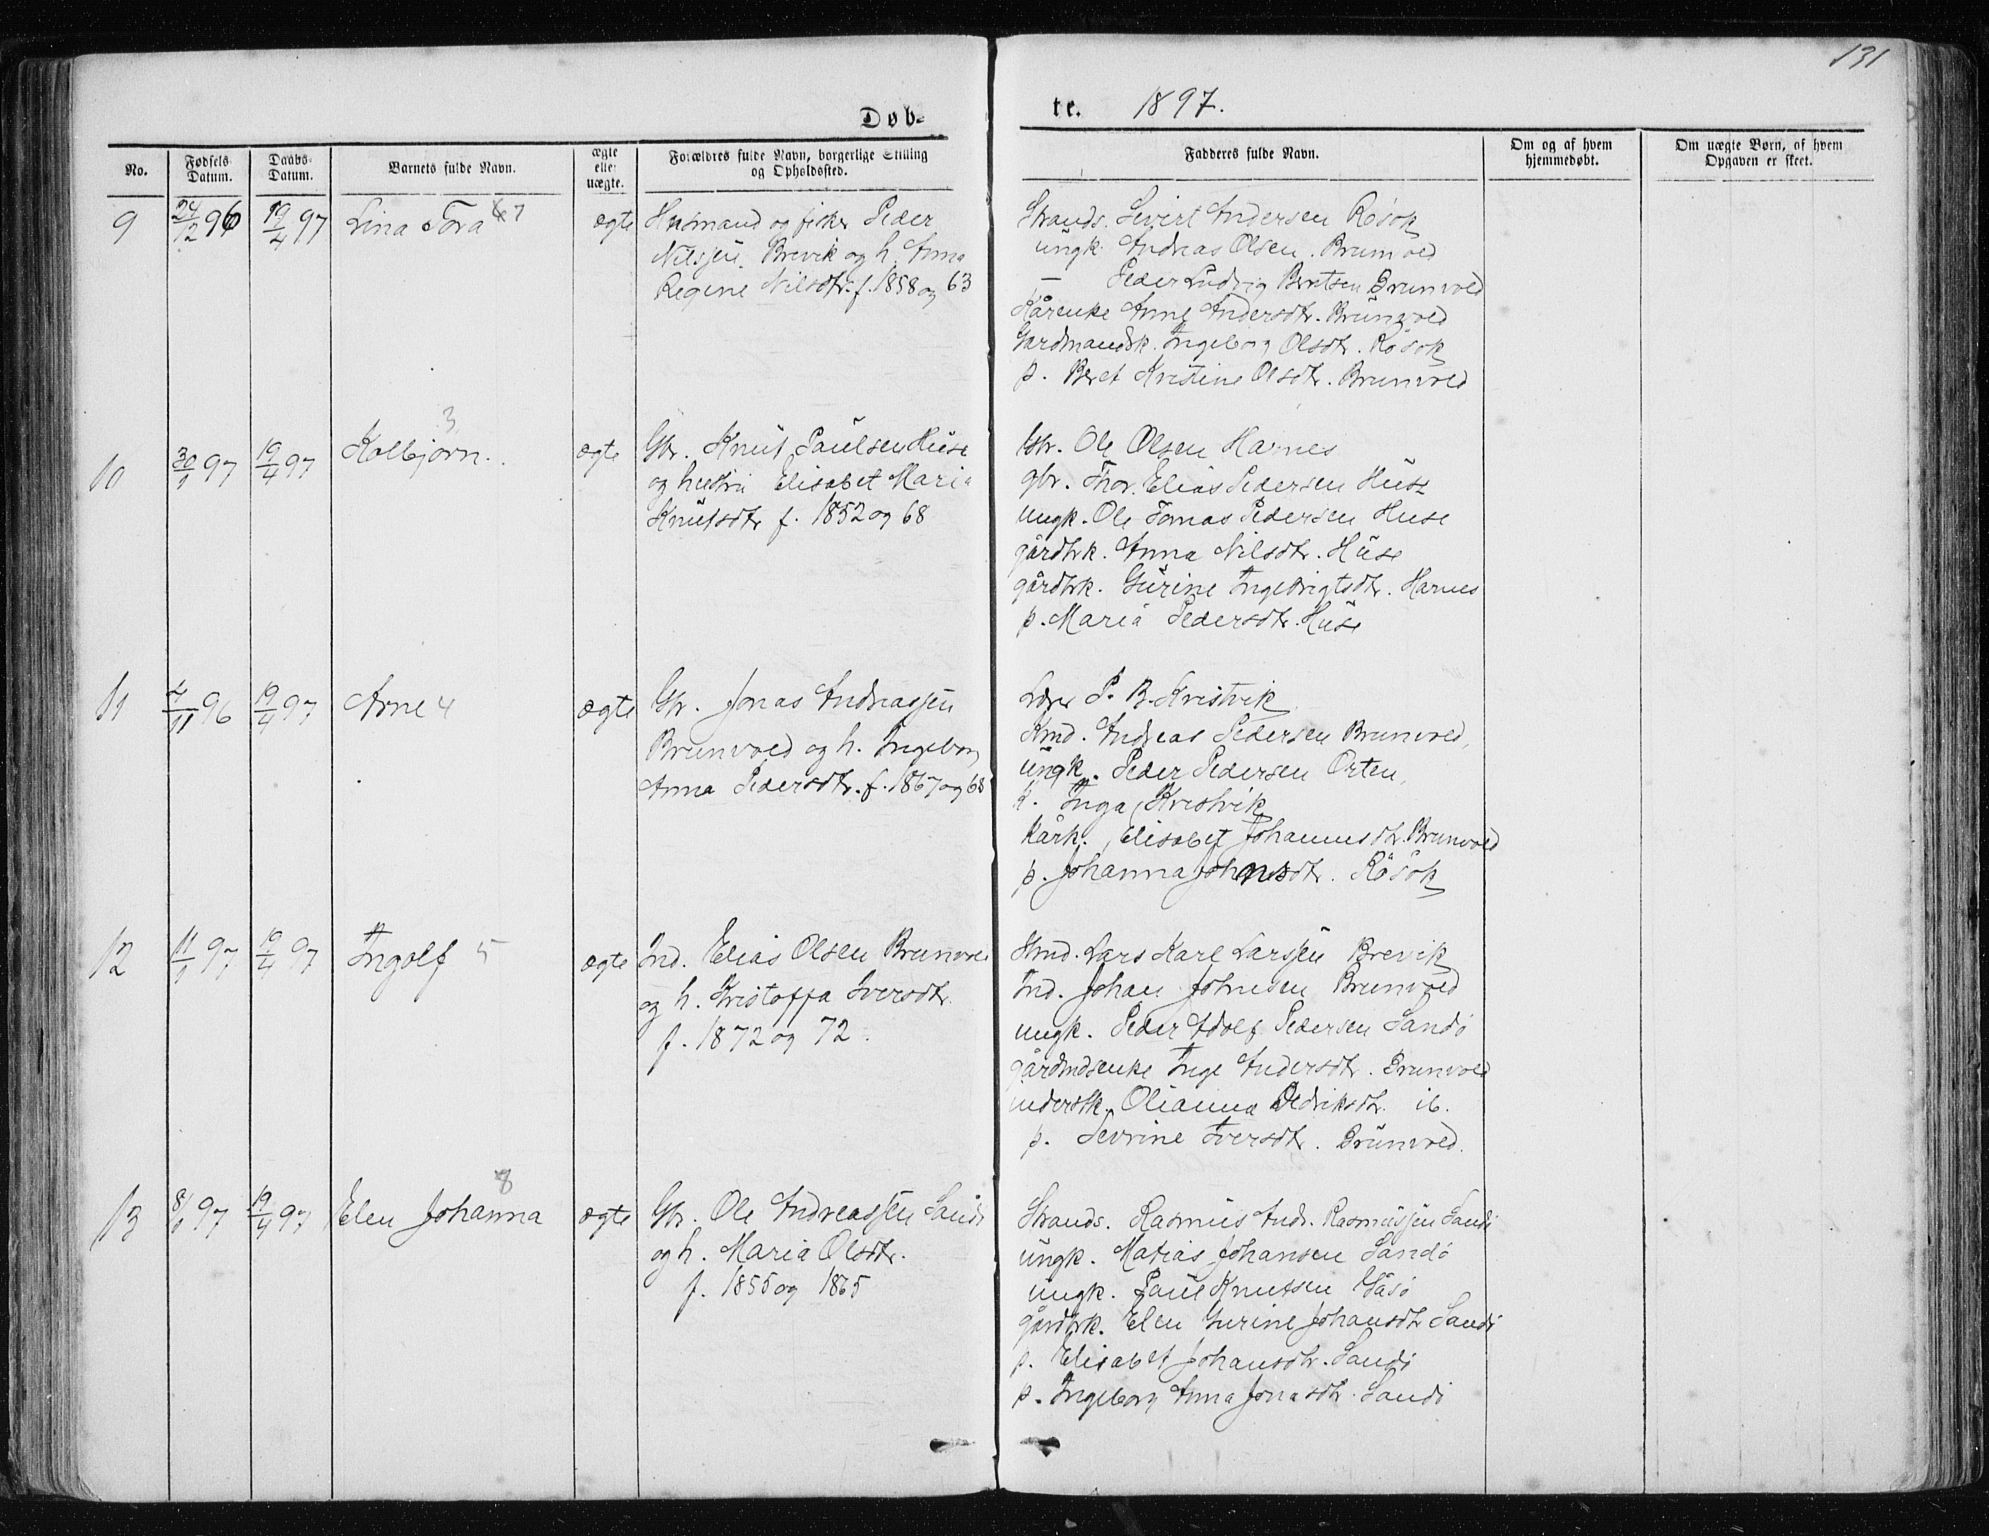 131
Døb-
te. 1897.
No.
Fødsels-
Datum.
Daabs-
Datum.
Barnets fulde Navn.
ægte
eller
uægte.
Forældres fulde Navn, borgerlige Stilling
og Opholdssted.
Fadderes fulde Navn.
Om og af hvem
hjemmedøbt.
Om uægte Børn, af hvem
Opgaven er skeet.
9 24/12 96 19/4 97 Lina Tora 7 ægte
Husmand og fisker Peder
Nilssen Brevik og h. Anna
Regine Nilsdtr. f. 1858 og 63
Strands. Severt Andersen Røsok
ungk. Andreas Olsen Brunvold
— Peder Ludvig Berntsen Brunvold
Kårenke Anne Andersdtr. Brunvold
Gardmandsk. Ingeborg Olsdtr. Røsok
p. Beret Kristine Olsdtr. Brunvold
10 30/1 97 19/4 97 Kolbjørn. 3 ægte
Gbr. Knut Paulsen Huse
og hustru Elisabet Maria
Knutsdtr f. 1852 og 68
Gbr. Ole Olsen Harnes
gbr. Thor. Elias Pedersen Huse
ungk. Ole Tomas Pedersen Huse
gårdbrk. Anna Nilsdtr. Huse
gårdbrk. Gurine Ingebrigtsdtr. Harnes
p. Maria Pedersdtr. Huse
11 4/11 96 19/4 97 Arne 4 ægte
Gbr. Jonas Andreassen
Brunvold og h. Ingeborg
Anna Pedersdtr. f. 1867 og 68
Lærer P. B. Kristvik
Kmd. Andreas Pedersen Brunvold,
ungk. Peder Pedersen Orten,
k. Inga Kristvik
Kårk. Elisabet Johannesdtr. Brunvold
p. Johanna Johnsdtr. Røsok
12 11/1 97 19/4 97 Ingolf 5 ægte
Ind. Elias Olsen Brunvold
og h. Kristoffa Iversdtr.
f. 1872 og 72.
Hmd. Lars Karl Larssen Brevik
Ind. Johan Johnsen Brunvold
ungk. Peder Adolf Pedersen Sandø
gårdmdsenke Inge Andersdtr. Brunvold
Olianna Dedriksdtr. ib.
p. Sevrine Iversdtr. Brunvold.
13 8/1 97 19/4 97 Elen Johanna 8 ægte
Gbr. Ole Andreassen Sandø
og h. Maria Olsdtr.
f. 1855 og 1865
Strands. Rasmus Andr. Rasmussen Sandø
ungk. Matias Johansen Sandø
ungk. Paul Knutsen
gårdbrk. Elen Gurine Johansdtr Sandø
p. Elisabet Johansdtr. Sandø
p. Ingeborg Anna Jonasdtr. Sandø